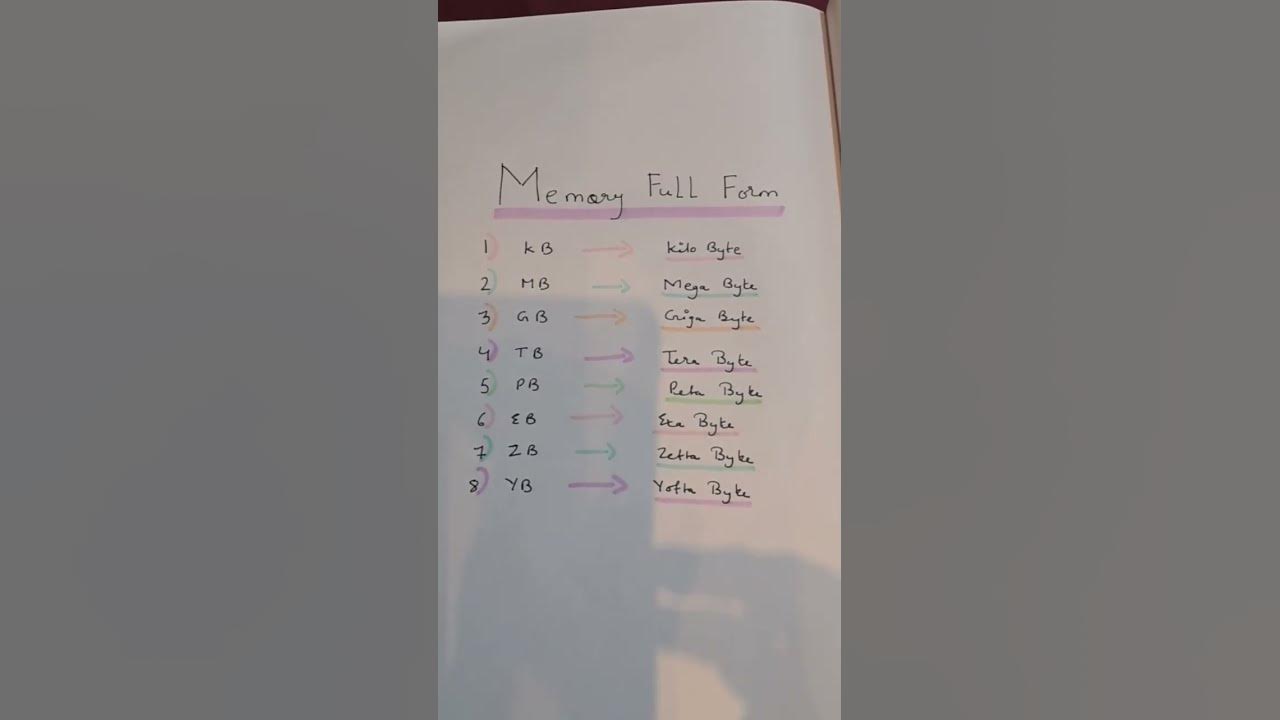 Memory Full Form
1) KB → Kilo Byte
2) MB → Mega Byte
3) GB → Giga Byte
4) TB → Tera Byte
5) PB → Peta Byte
6) EB → Exa Byte
7) ZB → Zetta Byte
8) YB → Yotta Byte